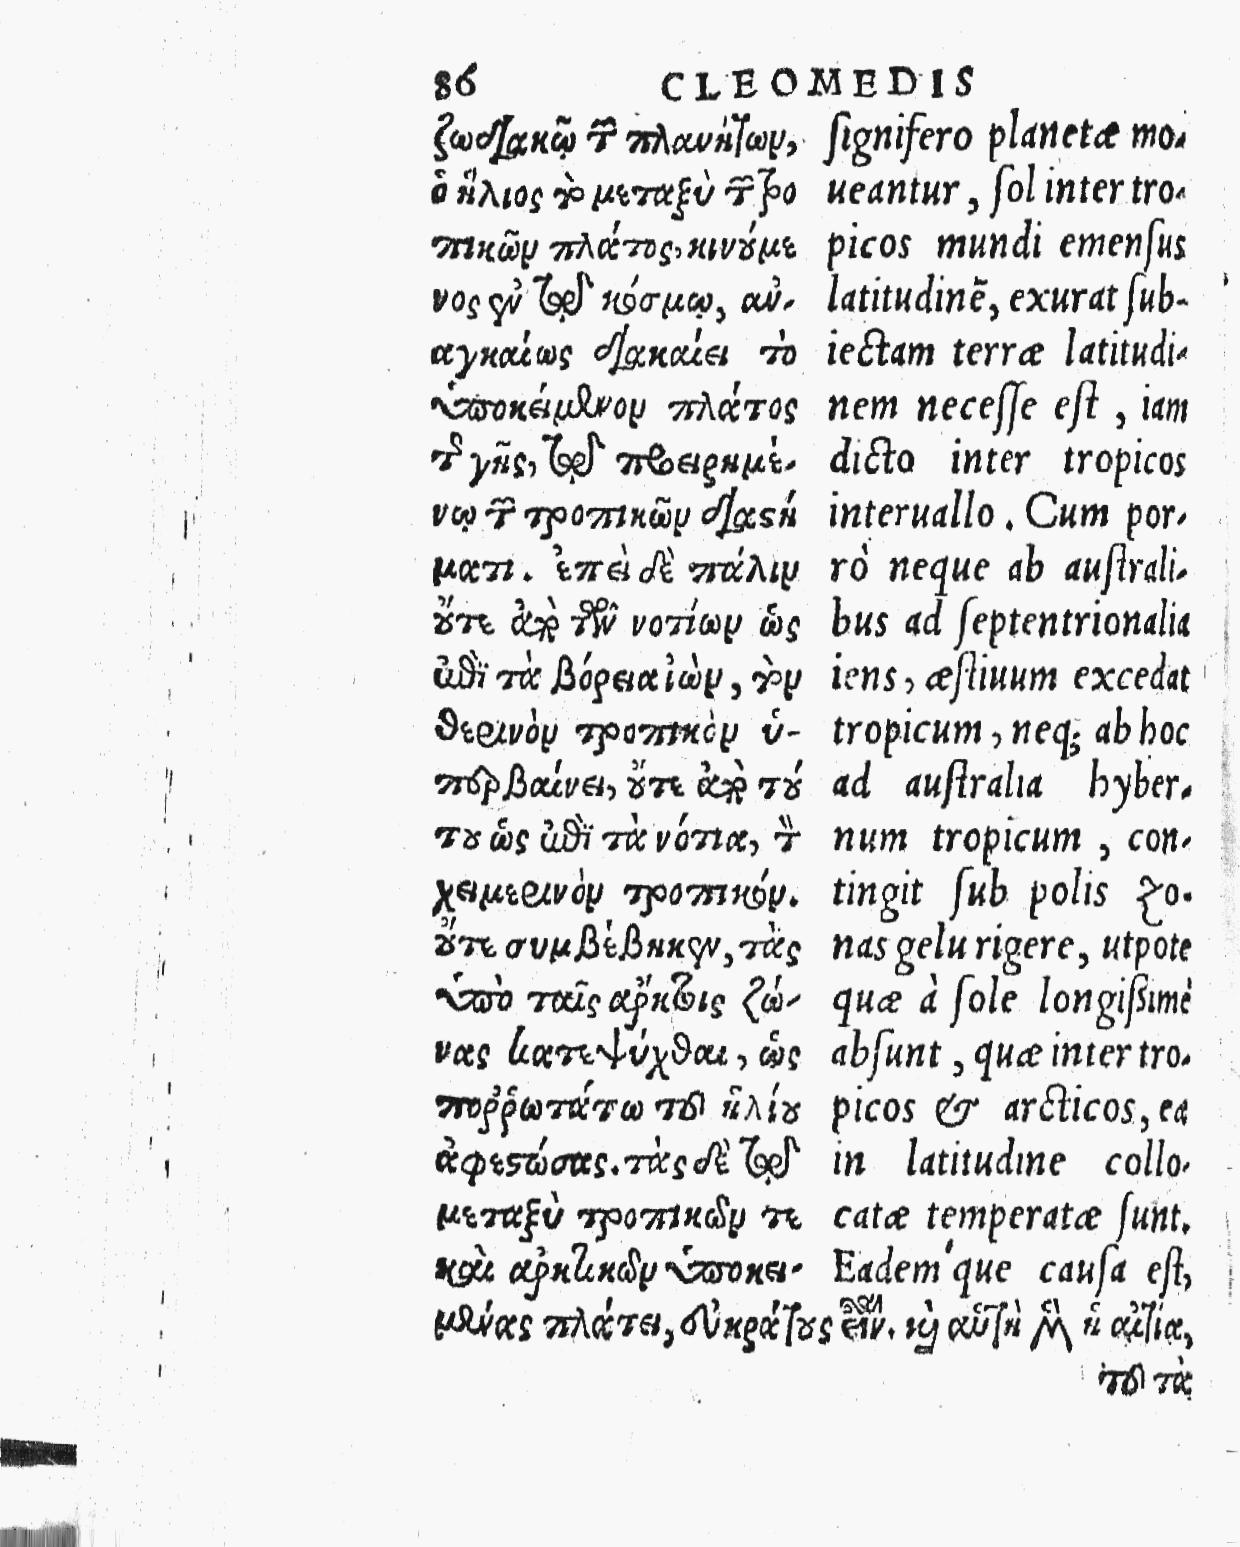 86 CLEOMEDIS
ζωδιακῷ τῶν πλανήτων,
ὁ ἥλιος τὸ μεταξὺ τῶν τρο
πικῶν πλάτος, κινούμε
νος ἐν τῷ κόσμῳ, ἀν-
αγκαίως διακαίει τὸ
ὑποκείμενον πλάτος
τῆς γῆς, τῷ προειρημέ-
νῳ τῶν τροπικῶν διαστή
ματι. ἐπεὶ δὲ πάλιν
οὔτε ἀπὸ τῶν νοτίων ὡς
ἐπὶ τὰ βόρεια ἰὼν, τὸν
θερινὸν τροπικὸν ὑ-
περβαίνει, οὔτε ἀπὸ τού
του ὡς ἐπὶ τὰ νότια, τὸν
χειμερινὸν τροπικόν.
οὔτε συμβέβηκεν, τὰς
ὑπὸ ταῖς ἄρκτοις ζώ-
νας κατεψύχθαι, ὡς
ποῤῥωτάτω τοῦ ἡλίου
ἀφεστώσας. τὰς δὲ τῷ
μεταξὺ τροπικῶν τε
καὶ ἀρκτικῶν ὑποκει-
μένας πλάτει, εὐκράτους εἶναι. καὶ αὕτη μὲν ἡ αἰτία,
τοῦ τὰ
signifero planetæ mo-
ueantur, sol inter tro-
picos mundi emensus
latitudinē, exurat sub-
iectam terræ latitudi-
nem necesse est, iam
dicto inter tropicos
interuallo. Cum por-
rò neque ab australi-
bus ad septentrionalia
iens, æstiuum excedat
tropicum, neq; ab hoc
ad australia hyber-
num tropicum, con-
tingit sub polis zo-
nas gelu rigere, utpote
quæ à sole longissimè
absunt, quæ inter tro-
picos & arcticos, ea
in latitudine collo-
catæ temperatæ sunt.
Eadem'que causa est,